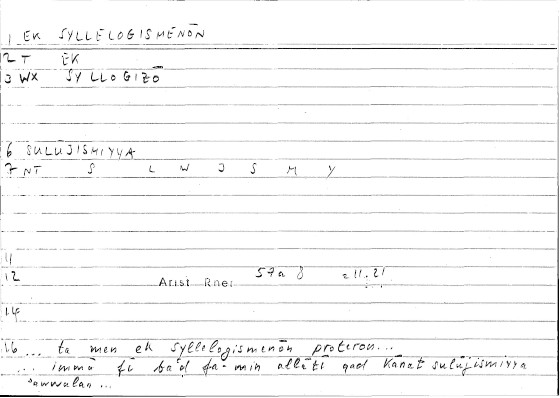 1 EK SYLLELOGISMENŌN
2 T EK
3 WX SYLLOGIZŌ
6 SULŪJISMIYYA
7 NT S L W J S M Y
11
12 Arist Rhet 57a 8 = 11.21
14
16 ... ta men ek syllelogismenōn proteron...
... immā fī ba'd fa-min allātī qad kānat sulūjismiyya
'awwalan ...